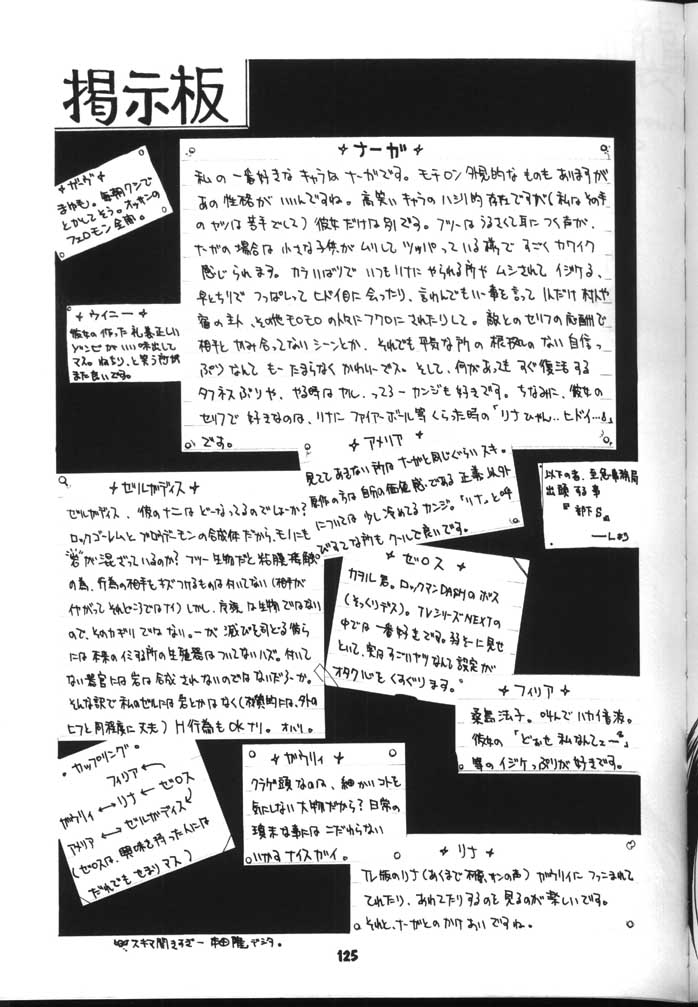 掲示板
✦ ナーガ ✦
私の一番好きなキャラはナーガです。モチロン外見的なものもありますが
あの性格がいいんですね。高笑いキャラのハシリ的存在ですが(私は
のヤツは苦手でして)彼女だけは別です。フツーはうるさくて耳につく声が、
ナーガの場合は小さな子供がムリしてツッパっている様で すごくカワイク
感じられます。カラいばりで いつもリナにやられる所や ムシされて イジケる、
早とちりで つっぱしって ヒドイ目に会ったり、言わんでもいー事を言って 村人や
宿の主人、その他モロモロの人々にフクロにされたりして。敵とのセリフの応酬で
相手と かみ合ってないシーンとか、それでも平気な所の 根拠のない自信っ
ぷりなんて もーたまらなくかわいーでス。そして、何があってもすぐ復活する
タフネスぶりや、やる時はヤル、ってろーカンジも好きです。ちなみに、彼女の
セリフで好きなのは、リナにファイアーボール等くらった時の「リナひゃん…ヒドイ…」
です。
✦ ガーヴ ✦
まゆも。毎朝クシで
とかしてそう。オッサンの
フェロモン全開。
✦ ウイニー ✦
彼女の作った礼義正しい
ゾンビがいい味出して
マス。ねちり、と笑う
また良いです。
✦ アメリア ✦
見ててあきない所はナーガと同じぐらいスキ。
原作の方は自分の価値感である正義以外
については少し冷めてるカンジ。「リナ」と呼
びすてな所もクールで良いです。
✦ ゼルガディス ✦
ゼルガディス、彼のナニはどーなってるのでしょーか?
ロックゴーレムとブロウデーモンの合成体だから、モノにも
"岩"が混ざっているのか? フツー生物だと粘膜
の為、行為の相手をキズつけるものは付いてない(相手が
イヤがって それどころではナイ)しかし、 は生物ではない
ので、そのカギリではない。一が 滅びを司どる彼ら
には 本来のイミする所の生殖器はついてないハズ。付いて
ない器官には岩は合成されないのではないだろーか。
そんな訳で 私のゼルには岩とかはなく(材質的には、外の
ヒフと同程度に丈夫) H行為もOKナリ。オハリ。
以下の者、至急事務局
出頭する事
『部下S』
✦ ゼロス
カヲル君。ロックマンDASHのボス
(そっくりデス)。TVシリーズNEXTの
中では一番好きです。弱そーに見せ
といて、実はすごいヤツなんて設定が
オタク心をくすぐります。
✦ フィリア ✦
桑島法子。叫んでハカイ音波。
彼女の「どぉせ私なんてェ〜」
等のイジケっぷりが好きです。
・カップリング・
フィリア
ガウリィ ←→ リナ ← ゼロス
アメリア ←→ ゼルガディス
(ゼロスは、興味を持った人には
だれでもせまりマス)
✦ ガウリィ ✦
クラゲ頭なのは、細かいコトを
気にしない大物だから? 日常の
瑣末な事にはこだわらない
いかすナイスガイ。
✦ リナ
TV版のリナ(あくまで林原サンの声)ガウリイにツッコまれて
てれたり、あわてたりするのを見るのが楽しいです。
それと、ナーガとのかけあいですね。
スキマ開きすぎー 本田 デシタ。
125